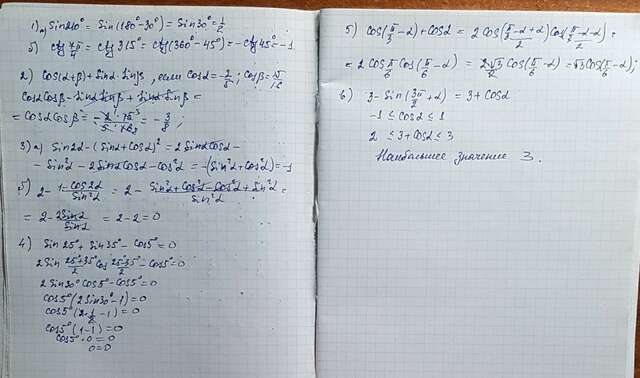 1) а) Sin210° = Sin(180°-30°) = Sin30° = 1/2
б) ctg 7π/4 = ctg 315° = ctg(360°-45°) = -ctg45° = -1.
2) Cos(α+β) + Sinα Sinβ, если Cosα = -2/5; Cosβ =
Cosα Cosβ - Sinα Sinβ + Sinα Sinβ =
= Cosα Cosβ = = -3/8;
3) а) Sin2α - (Sinα + Cosα)² = 2 Sinα Cosα -
- Sin²α - 2 Sinα Cosα - Cos²α = -(Sin²α + Cos²α) = -1
б) 2 - (1-Cos2α)/Sin²α = 2 - (Sin²α + Cos²α - Cos²α + Sin²α)/Sin²α =
= 2 - 2Sin²α/Sin²α = 2-2 = 0
4) Sin25° + Sin35° - Cos5° = 0
2 Sin (25°+35°)/2 Cos (25°-35°)/2 - Cos5° = 0
2 Sin30° Cos5° - Cos5° = 0
Cos5° (2 Sin30° - 1) = 0
Cos5° (2·1/2 - 1) = 0
Cos5° (1-1) = 0
Cos5° · 0 = 0
0 = 0
5) Cos(π/3 - α) + Cosα = 2 Cos (π/3-α+α)/2 Cos (π/3-α-α)/2 =
= 2 Cos π/6 Cos(π/6 - α) = 2·√3/2 Cos(π/6 - α) = √3 Cos(π/6 - α);
6) 3 - Sin(3π/2 + α) = 3 + Cosα
-1 ≤ Cosα ≤ 1
2 ≤ 3+Cosα ≤ 3
Наибольшее значение 3.